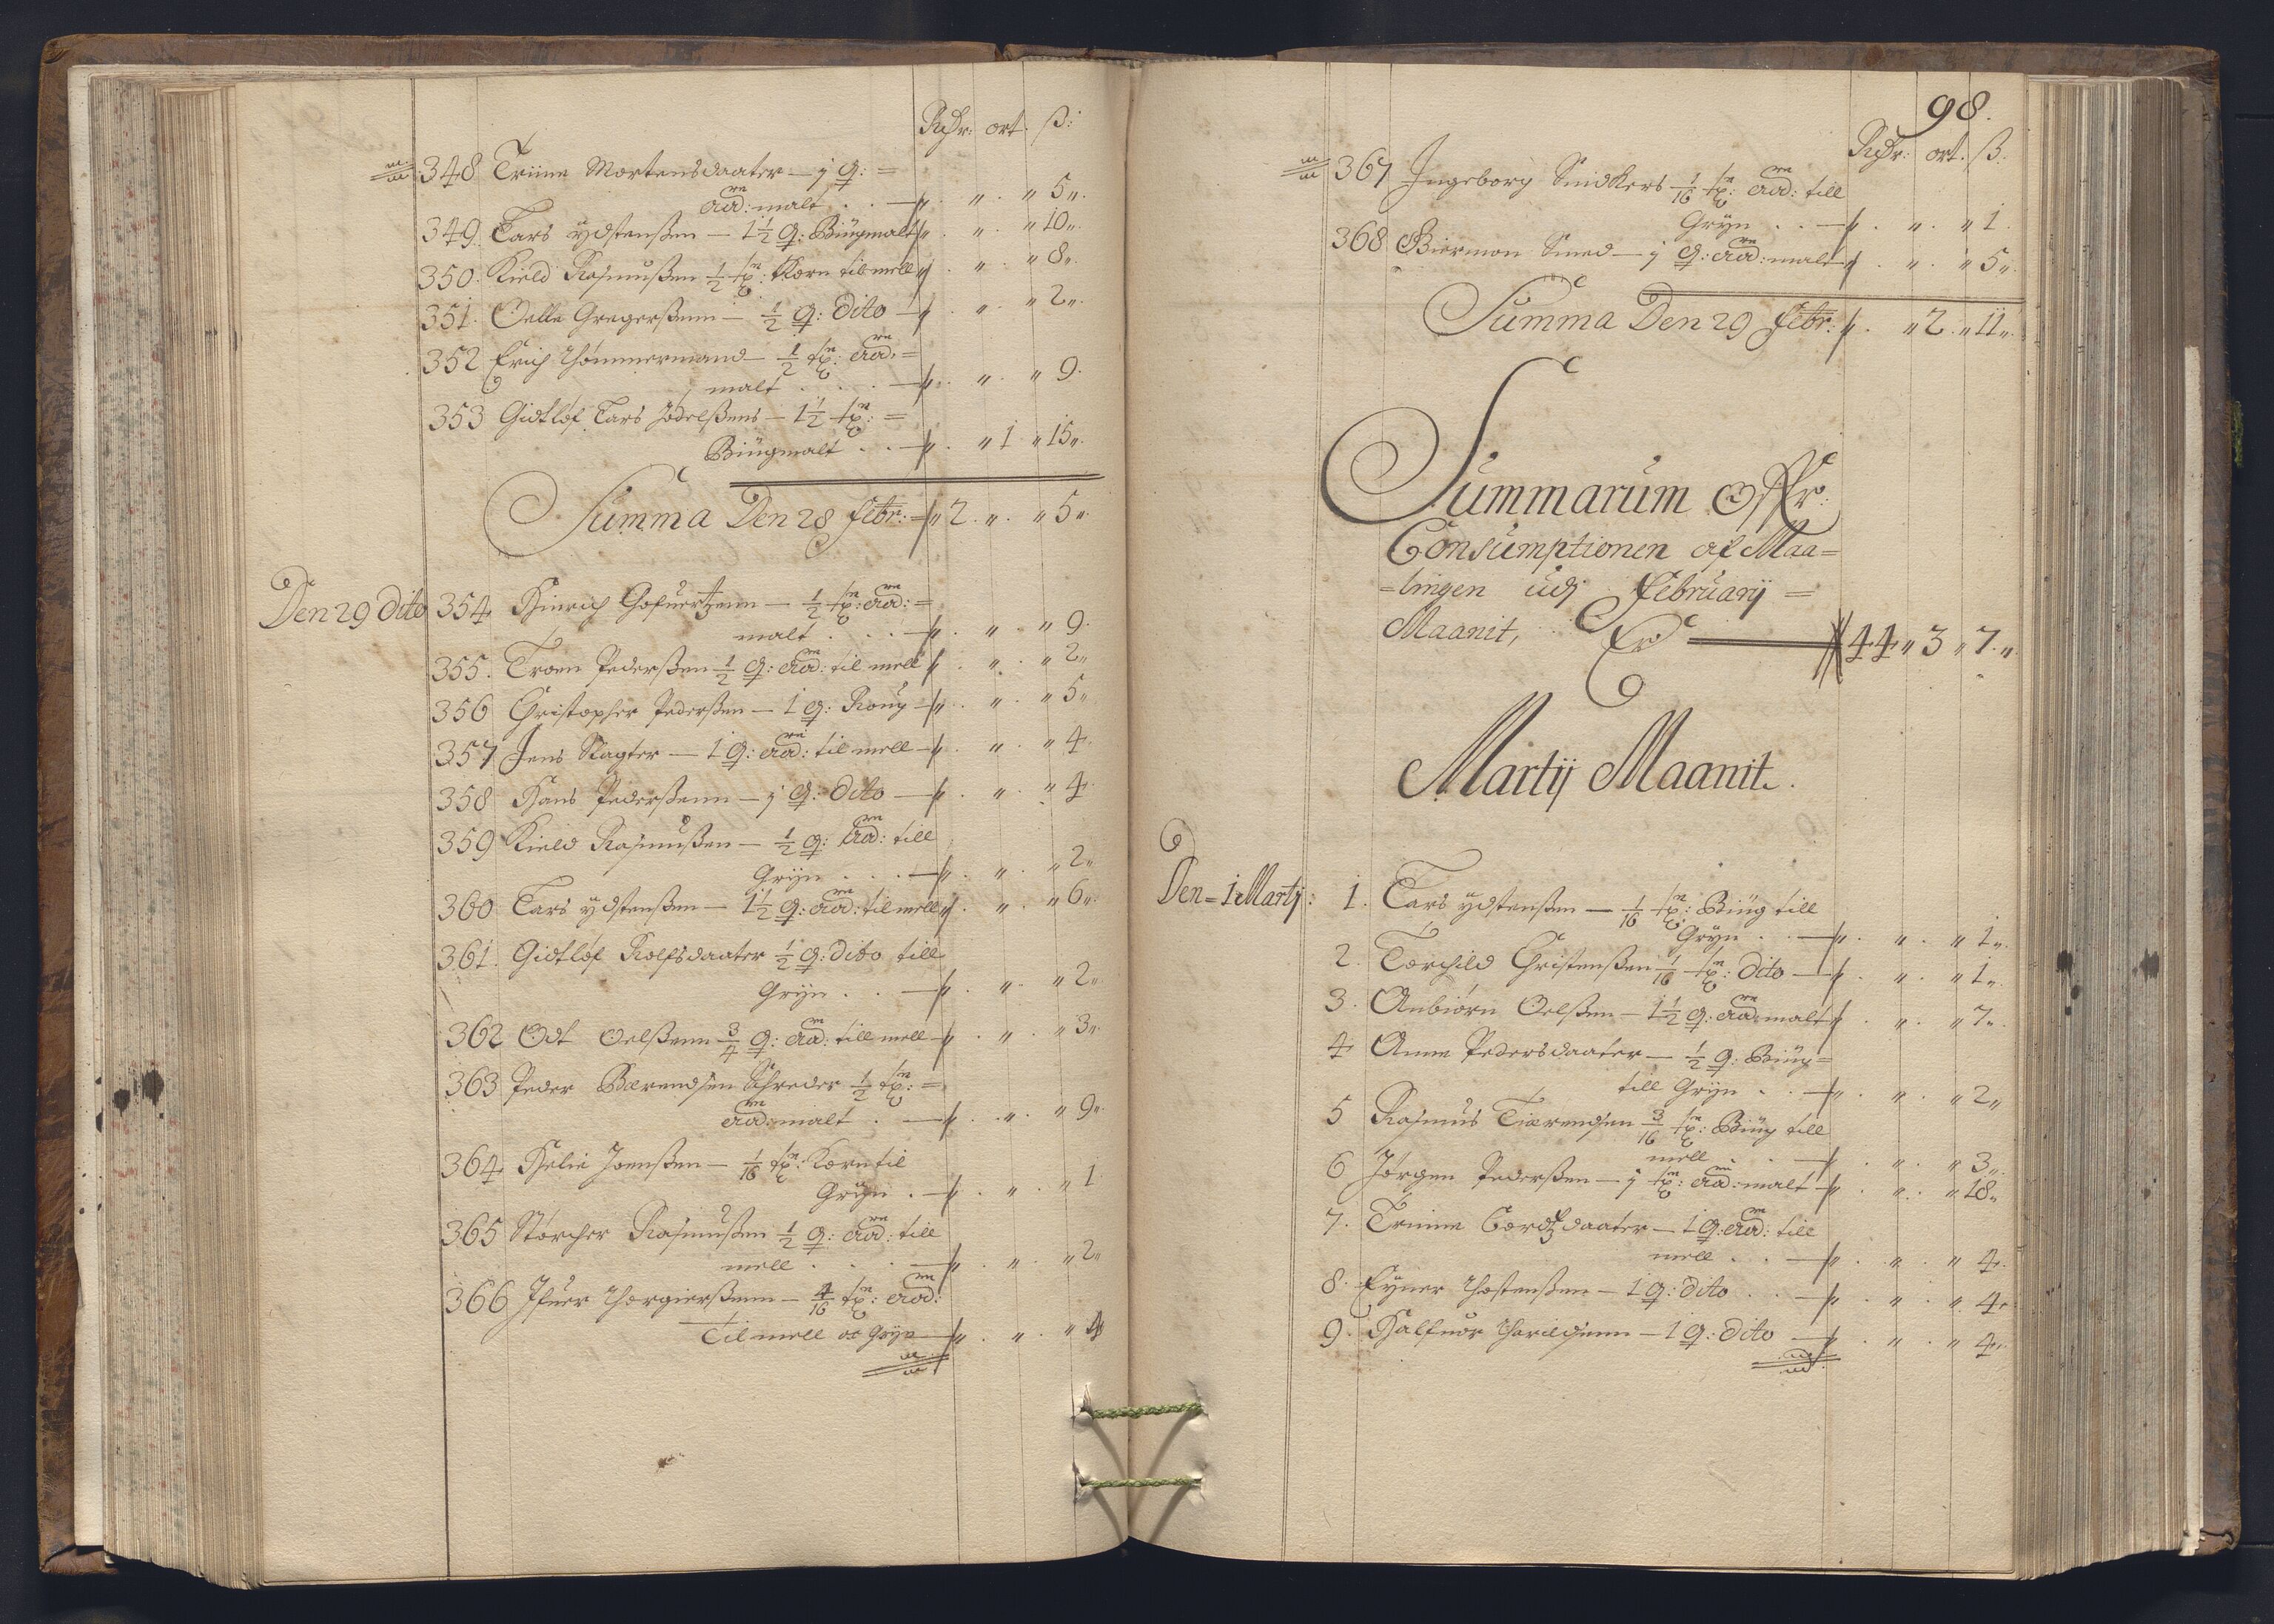 Rdr: ort. ß:
348 Triine Mortensdaater — j q: =
Aad: malt . . — " . " 5 ".
349. Lars ydstenßen — 1 1/2 q: Biügmalt " . " 10 ".
350. Kield Rasmußen 1/2 tn: Korn til mell " . " 8 ".
351. Oelle Gregerßenn — 1/2 q: dito — " . " 2 ".
352 Erich Thømmermand — 1/2 tn: Aad: =
malt . . . — " . " 9.
353 Gidtløf Lars Jodelßens — 1 1/2 tn: =
Biügmalt . . — " 1 " 15 ".
Summa Den 28 febr: — " 2 . " . " 5 ".
Den 29 dito 354 Hinrich Gofuertzenn — 1/2 tn: Aad: =
malt . . . — " . " 9.
355. Troen Pederßen 1/2 q: Aad: til mell " . " 2 "
356 Christopher Pederßen — 1 q: Roug — " . " 5 "
357 Jens Slagter — 1 q: Aad: til mell — " . " 4.
358 Hans Pederßenn — j q: dito — " . " 4.
359 Kield Rasmußen — 1/2 q: Aad: till
Gryn . . . — " . " 2 "
360 Lars ydstenßen — 1 1/2 q: Aad: til mell " . " 6 ".
361. Gidtløf Rolfsdaater 1/2 q: dito till
Gryn . . — " . " 2 "
362 Odt Oelßenn 3/4 q: Aad: till mell — " . " 3 ".
363 Peder Berendsen Schreder 1/2 tn: =
Aad: malt . — " . " 9 ".
364 Helie Joenßen — 1/16 tn: Korn til
Gryn . — " . " 1
365 Størcher Rasmußen 1/2 q: Aad: till
mell . . . — " . " 2 "
366 Ifuer Thorgierßenn — 4/16 tn: Aad:
Til mell oc Gryn — " . " 4
98.
Rdr: ort. ß.
367 Ingeborg Smidkers 1/16 tn: Aad: till
Gryn . . — " . " 1.
368 Biermon Smed — j q: Aad: malt " . " 5 ".
Summa Den 29 febr: " . " 2 . " 11 ".
Summarum Offr:
Consumptionen af Maa=
=lingen udj Februarij =
Maanit, Er — 44 " 3 " 7 . "
Martij Maanit.
Den = 1 Martij: 1. Lars ydstenßen — 1/16 tn: Biüg till
Gryn . . — " . " 1 ".
2. Torchild Christenßen 1/16 tn: dito — " . " 1 ".
3. Anbiørn Oelßen — 1 1/2 q: Aad: malt " . " 7 ".
4 Anne Pedersdaater — 1/2 q: Biüg =
till Gryn . . — " . " 2 "
5 Rasmus Tiærendsen 3/16 tn: Biüg till
mell . . — " . " 3 ".
6 Jørgen Pederßen — j tn: Aad: malt — " . " 18 "
7. Trinne Gordtzdaater — 1 q: Aad: till
mell . . . — " . " 4.
8. Eyner Thostenßen — 1 q: dito . . — " . " 4 "
9. Halfuor — 1 q: dito — " . " 4 "